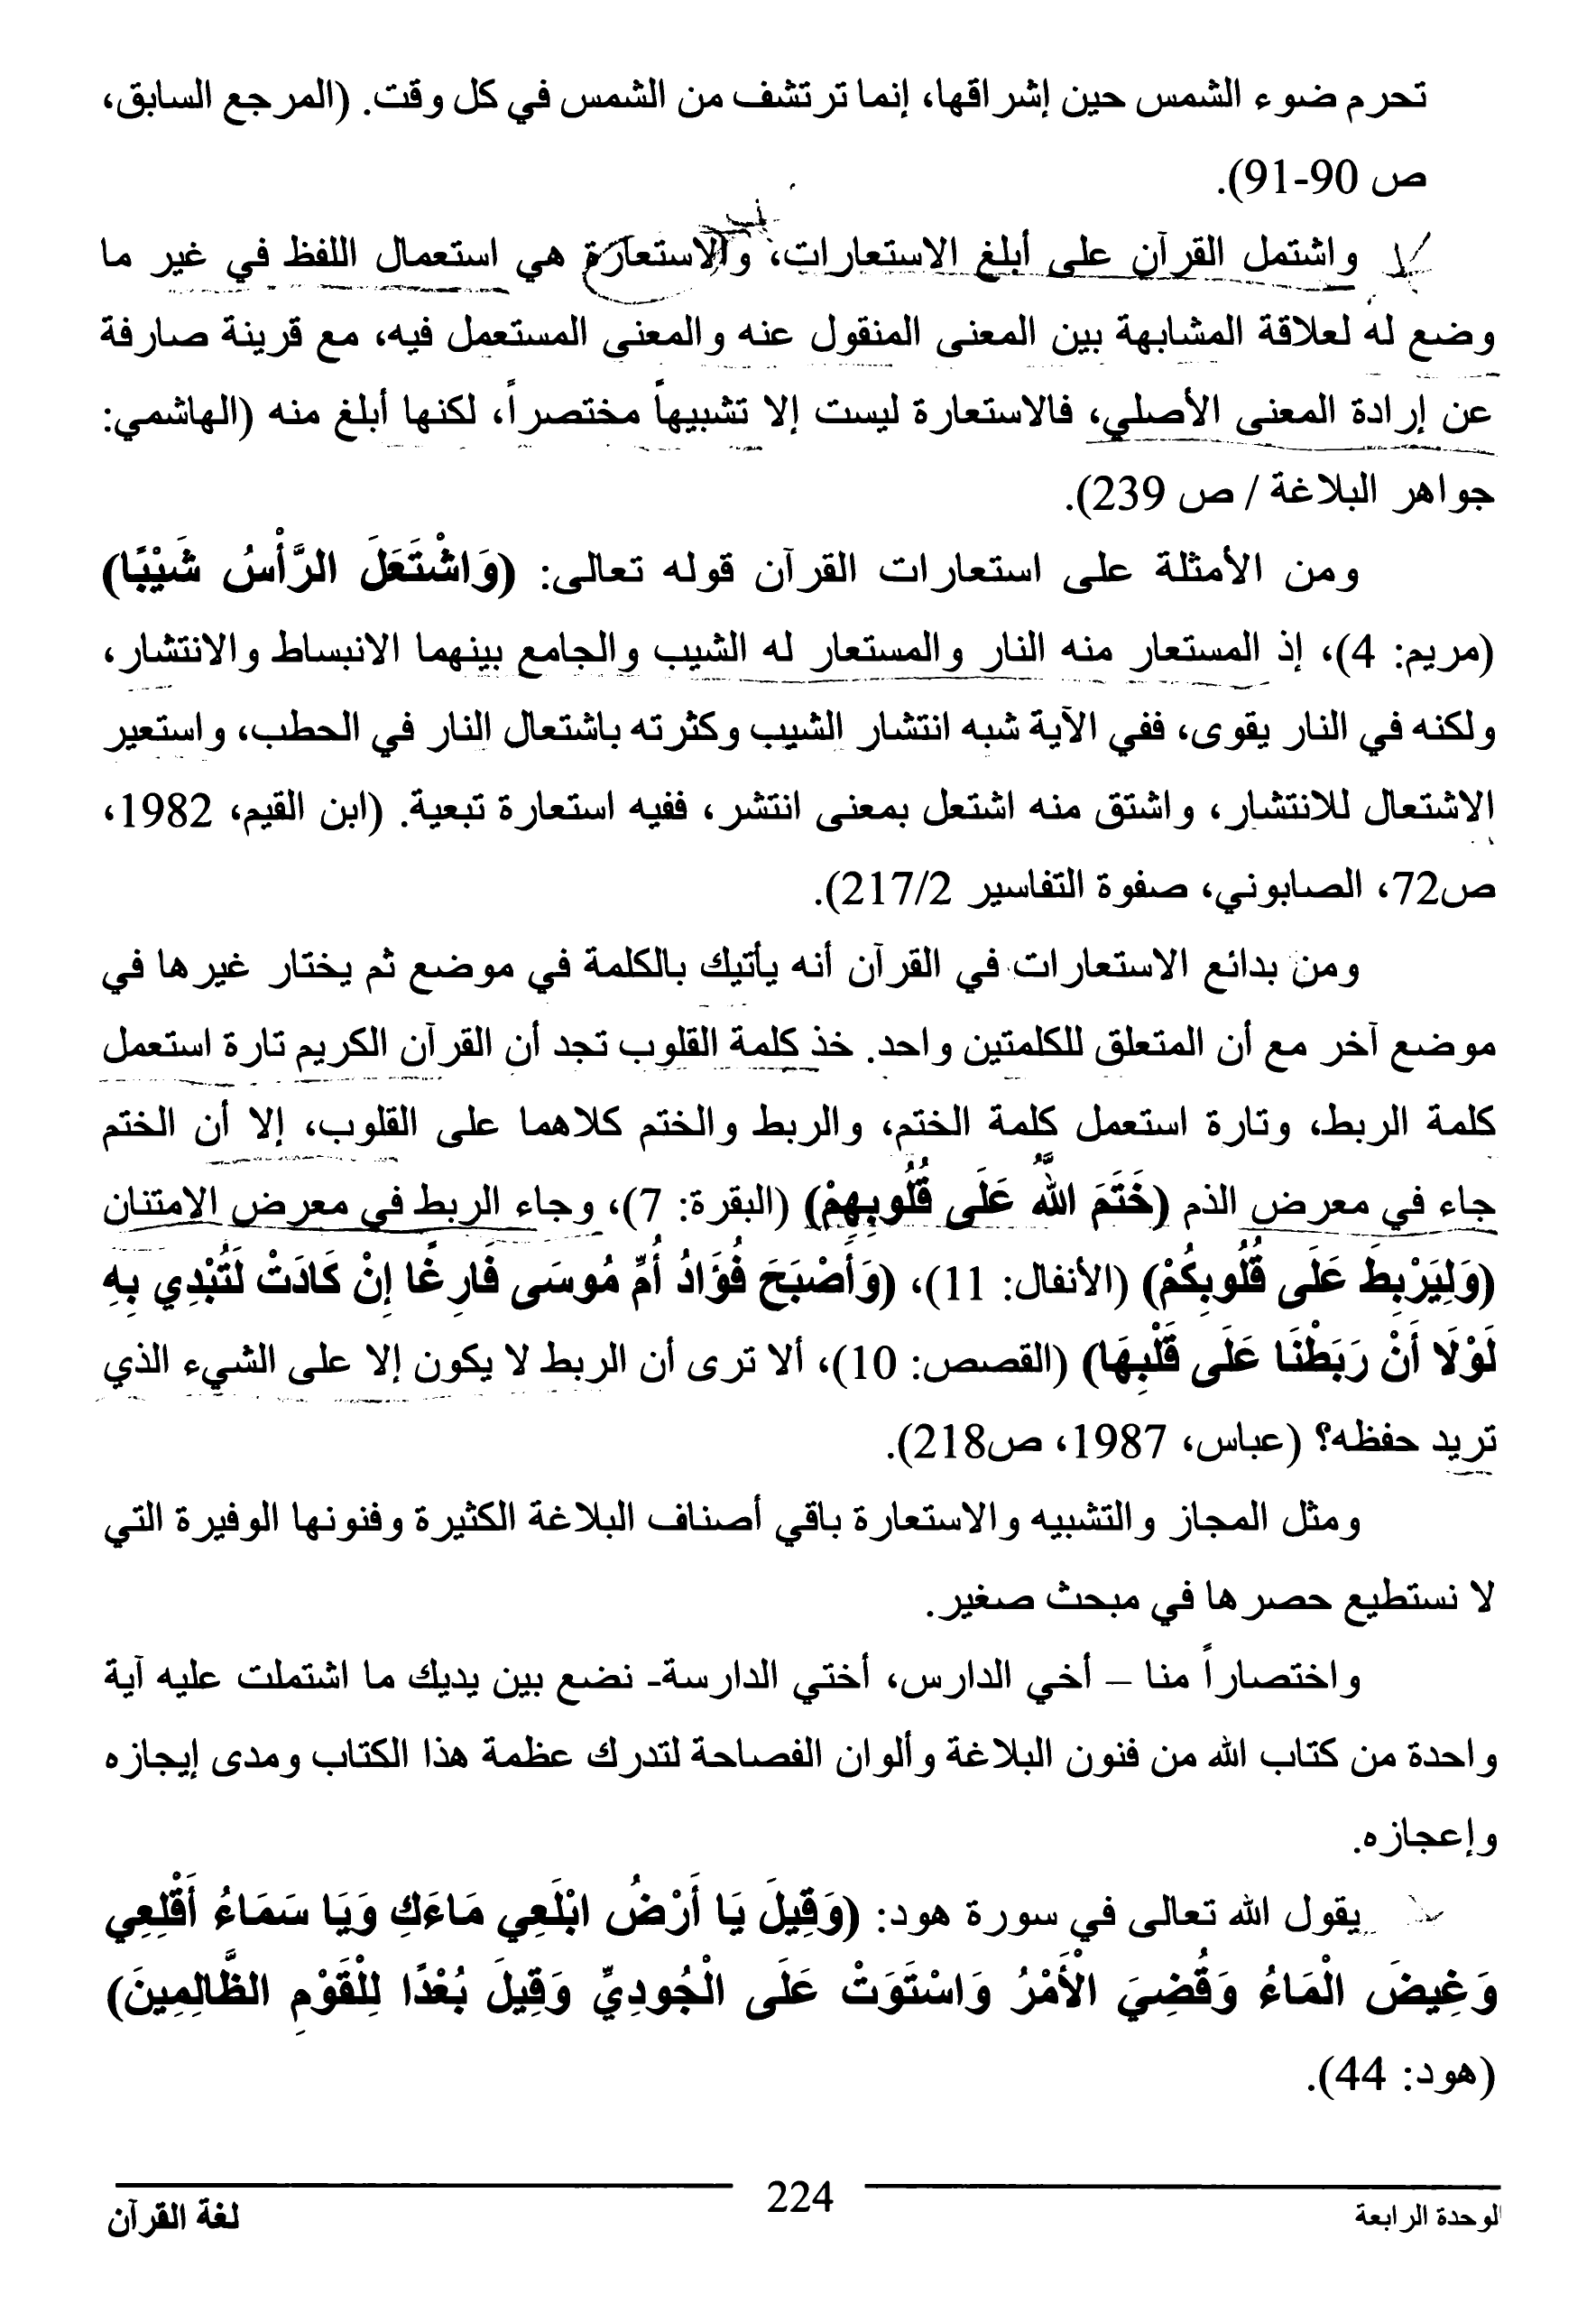 تحرم ضوء الشمس حين إشراقها، إنما ترتشف من الشمس في كل وقت. (المرجع السابق،
ص 90-91).
واشتمل القرآن على أبلغ الاستعارات، والاستعارة هي استعمال اللفظ في غير ما
وضع له لعلاقة المشابهة بين المعنى المنقول عنه والمعنى المستعمل فيه، مع قرينة صارفة
عن إرادة المعنى الأصلي، فالاستعارة ليست إلا تشبيهاً مختصراً، لكنها أبلغ منه (الهاشمي:
جواهر البلاغة / ص 239).
ومن الأمثلة على استعارات القرآن قوله تعالى: (وَاشْتَعَلَ الرَّأْسُ شَيْبًا)
(مريم: 4)، إذ المستعار منه النار والمستعار له الشيب والجامع بينهما الانبساط والانتشار،
ولكنه في النار يقوى، ففي الآية شبه انتشار الشيب وكثرته باشتعال النار في الحطب، واستعير
الاشتعال للانتشار، واشتق منه اشتعل بمعنى انتشر، ففيه استعارة تبعية. (ابن القيم، 1982،
ص72، الصابوني، صفوة التفاسير 217/2).
ومن بدائع الاستعارات في القرآن أنه يأتيك بالكلمة في موضع ثم يختار غيرها في
موضع آخر مع أن المتعلق للكلمتين واحد. خذ كلمة القلوب تجد أن القرآن الكريم تارة استعمل
كلمة الربط، وتارة استعمل كلمة الختم، والربط والختم كلاهما على القلوب، إلا أن الختم
جاء في معرض الذم (خَتَمَ اللَّهُ عَلَى قُلُوبِهِمْ) (البقرة: 7)، وجاء الربط في معرض الامتنان
(وَلِيَرْبِطَ عَلَى قُلُوبِكُمْ) (الأنفال: 11)، (وَأَصْبَحَ فُؤَادُ أُمِّ مُوسَى فَارِغًا إِنْ كَادَتْ لَتُبْدِي بِهِ
لَوْلَا أَنْ رَبَطْنَا عَلَى قَلْبِهَا) (القصص: 10)، ألا ترى أن الربط لا يكون إلا على الشيء الذي
تريد حفظه؟ (عباس، 1987، ص218).
ومثل المجاز والتشبيه والاستعارة باقي أصناف البلاغة الكثيرة وفنونها الوفيرة التي
لا نستطيع حصرها في مبحث صغير.
واختصاراً منا – أخي الدارس، أختي الدارسة- نضع بين يديك ما اشتملت عليه آية
واحدة من كتاب الله من فنون البلاغة وألوان الفصاحة لتدرك عظمة هذا الكتاب ومدى إيجازه
وإعجازه.
يقول الله تعالى في سورة هود: (وَقِيلَ يَا أَرْضُ ابْلَعِي مَاءَكِ وَيَا سَمَاءُ أَقْلِعِي
وَغِيضَ الْمَاءُ وَقُضِيَ الْأَمْرُ وَاسْتَوَتْ عَلَى الْجُودِيِّ وَقِيلَ بُعْدًا لِلْقَوْمِ الظَّالِمِينَ)
(هود: 44).
الوحدة الرابعة
224
لغة القرآن